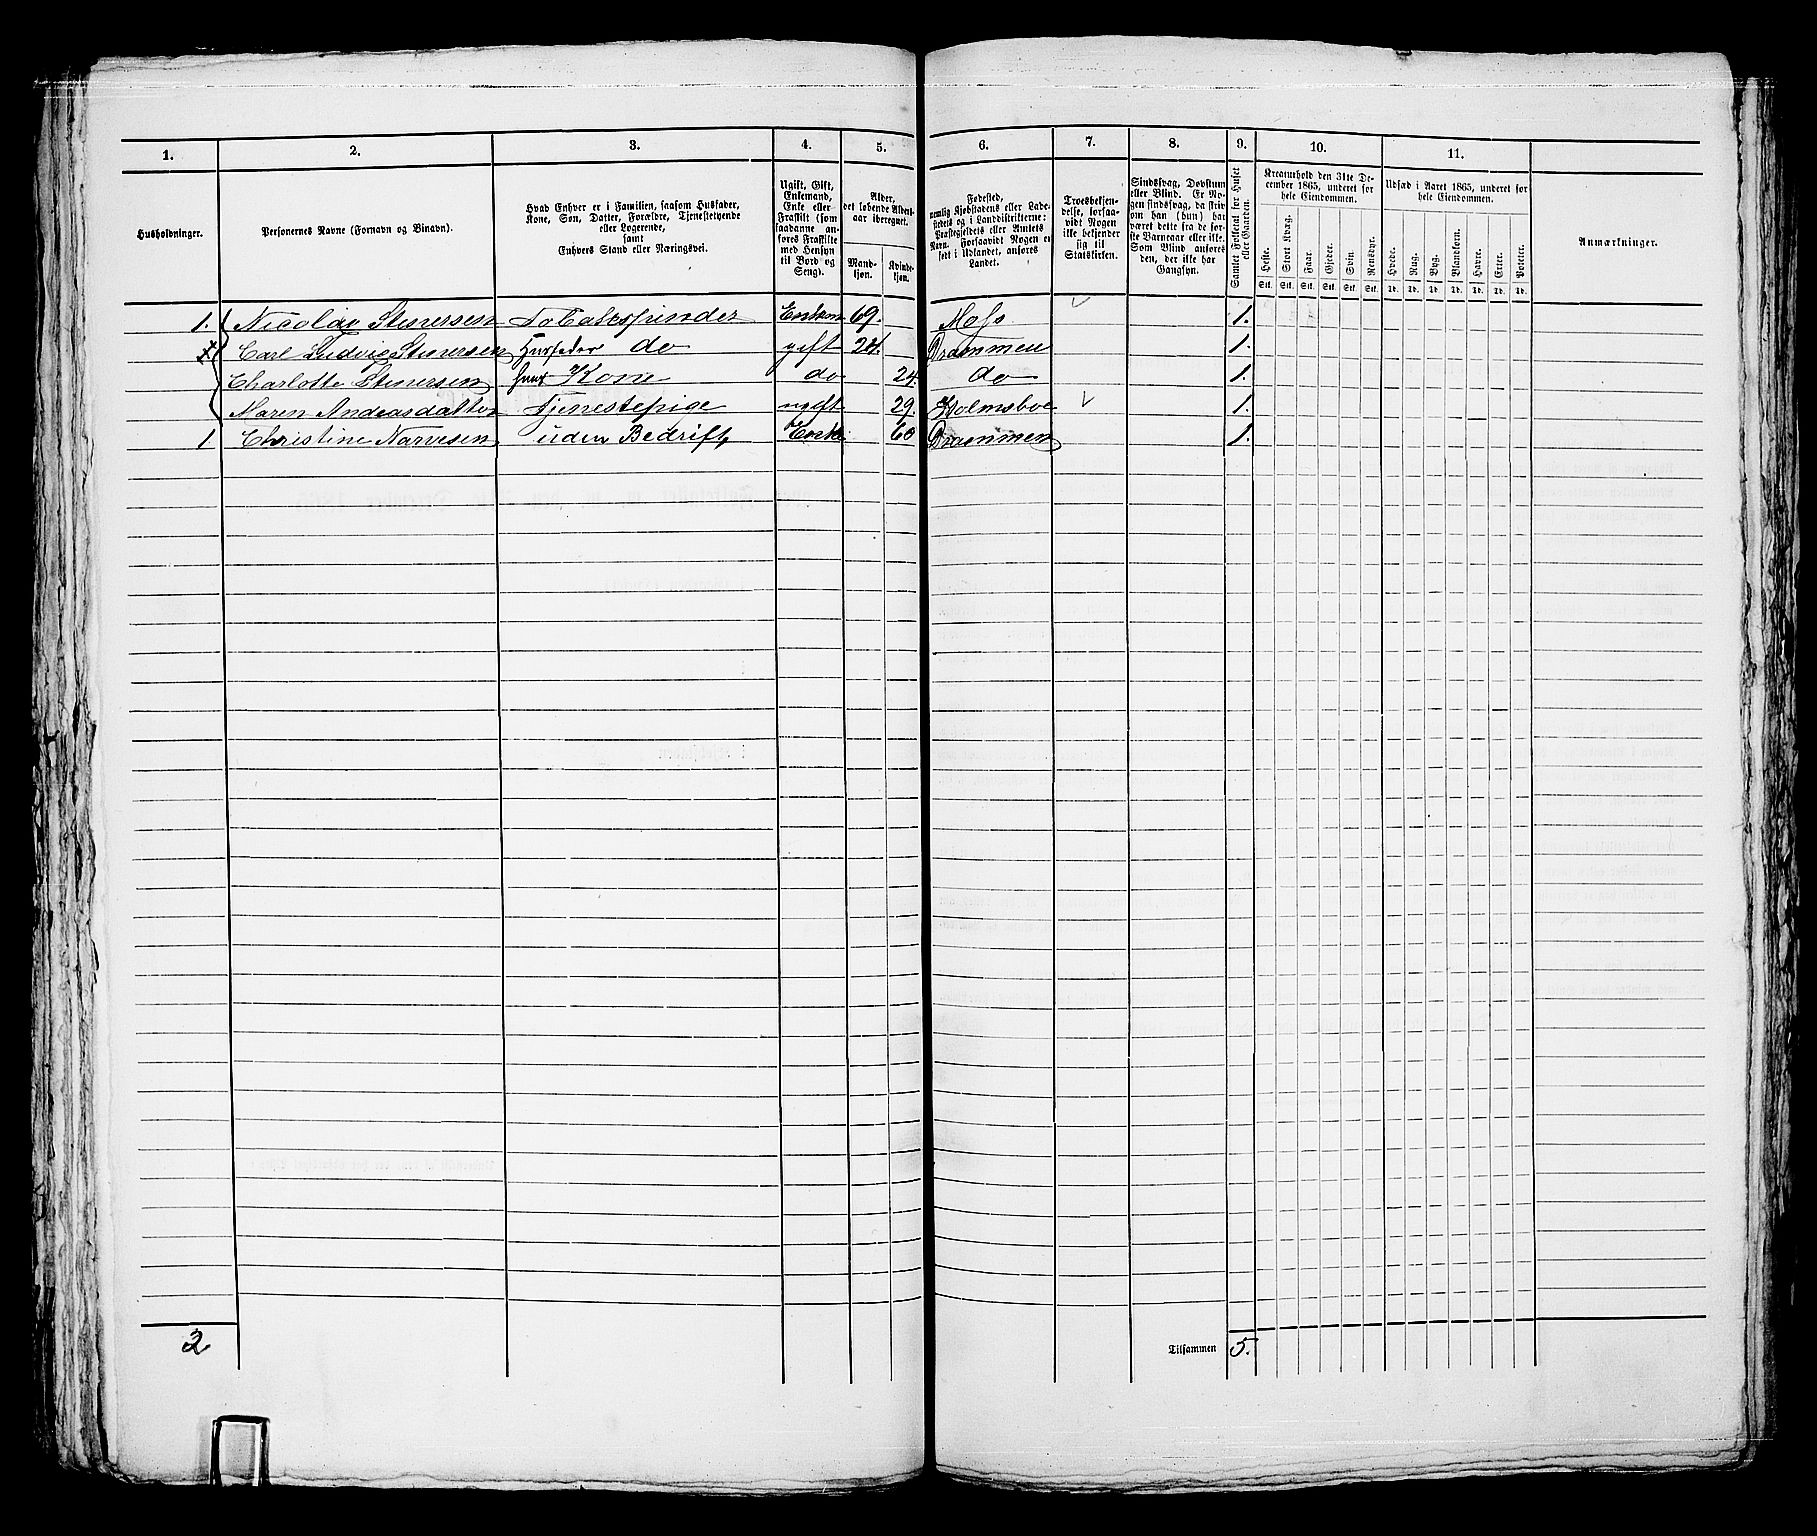 1. 2. 3. 4. 5. 6. 7. 8. 9. 10. 11.
Husholdninger.
Personernes Navne (Fornavn og Binavn).
Hvad Enhver er i Familien, saasom Husfader,
Kone, Søn, Datter, Forældre, Tjenestetyende
eller Logerende,
samt
Enhvers Stand eller Næringsvei.
Ugift, Gift,
Enkemand,
Enke eller
Fraskilt (som
saadanne an-
føres Fraskilte
med Hensyn
til Bord og
Seng).
Alder,
det løbende Alders-
aar iberegnet.
Mand-
kjøn.
Kvinde-
kjøn.
Fødested,
nemlig Kjøbstadens eller Lade-
stedets og i Landdistrikterne:
Præstegjeldets eller Amtets
Navn. Forsaavidt Nogen er
født i Udlandet, anføres
Landet.
Troesbekjen-
delse, forsaa-
vidt Nogen
ikke bekjender
sig til
Statskirken.
Sindssvag, Døvstum
eller Blind. Er No-
gen sindssvag, da skriv
om han (hun) har
været dette fra de før-
ste Barneaar eller ikke.
Som Blind anføres
den, der ikke har
Gangsyn.
Samlet Folketal for Huset
eller Gaarden.
Kreaturhold den 31te De-
cember 1865, underet for
hele Eiendommen.
Heste. Stort Kvæg. Faar. Gjeder. Svin. Rensdyr.
Stk. Stk. Stk. Stk. Stk. Stk.
Udsæd i Aaret 1865, underet for
hele Eiendommen.
Hvede. Rug. Byg. Blandkorn. Havre. Erter. Poteter.
Td. Td. Td. Td. Td. Td. Td.
Anmærkninger.
1. Nicolay Stenersen Tobaksspinder Enkem 69. Moss 1.
Carl Ludvig Stenersen Husfader do gift 24. Drammen 1.
Charlotte Stenersen hans Kone do 24. do 1.
Maren Andreasdatter Tjenestepige ugift 29. Holmsboe 1.
1 Christine Narvesen uden Bedrift Enke 60 Drammen 1.
2 Tilsammen 5.